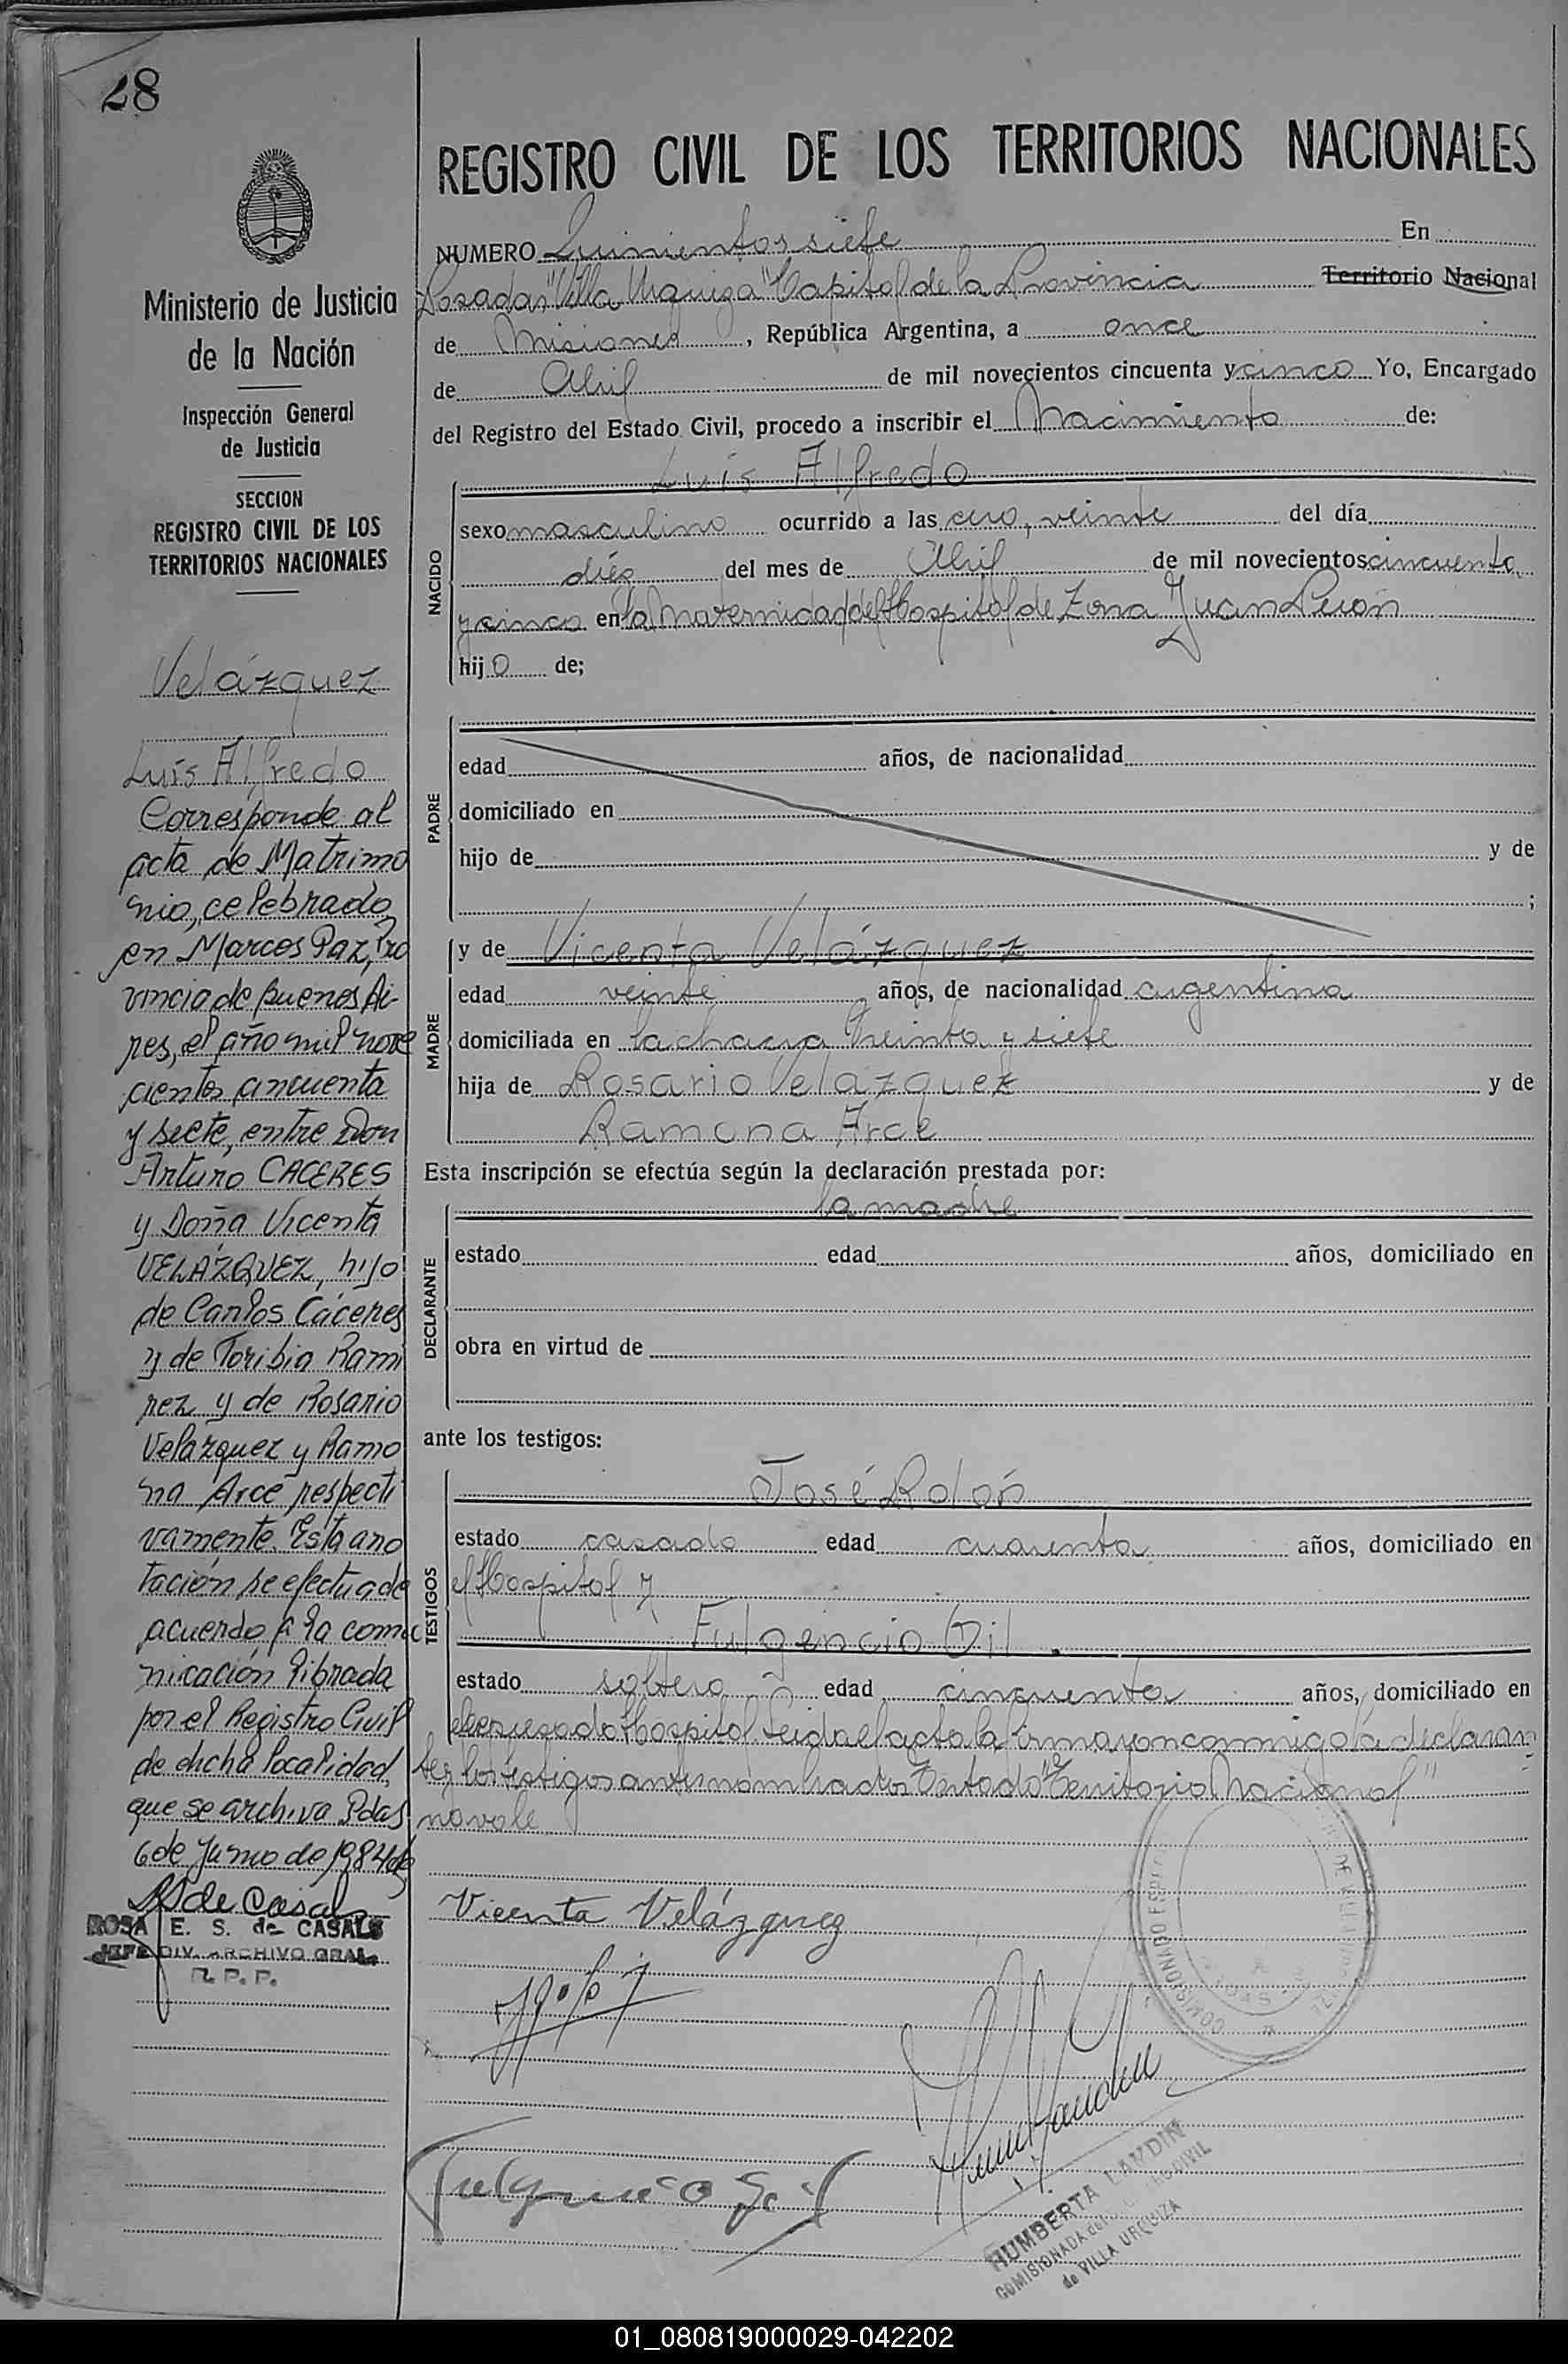 28
REGISTRO CIVIL DE LOS TERRITORIOS NACIONALES
NUMERO Quinientos siete En
Posadas "Villa Urquiza" Capital de la Provincia Territorio Nacional
de Misiones, República Argentina, a once
de Abril de mil novecientos cincuenta y cinco Yo, Encargado
del Registro del Estado Civil, procedo a inscribir el Nacimiento de:
NACIDO
Luis Alfredo
sexo masculino ocurrido a las cero, veinte del día
diéz del mes de Abril de mil novecientos cincuenta
y cinco en la Maternidad del Hospital de Zona Juan Perón
hijo de;
PADRE
edad años, de nacionalidad
domiciliado en
hijo de y de
;
y de Vicenta Velázquez
MADRE
edad veinte años, de nacionalidad argentina
domiciliada en la chacra treinta y siete
hija de Rosario Velázquez y de
Ramona Arce
Esta inscripción se efectúa según la declaración prestada por:
la madre
DECLARANTE
estado edad años, domiciliado en
obra en virtud de
ante los testigos:
TESTIGOS
José Rolón
estado casado edad cuarenta años, domiciliado en
el Hospital y
Fulgencio Gil.
estado soltero edad cincuenta años, domiciliado en
el expresado Hospital. Leida el acta la firmaron conmigo la declaran
te y los testigos antes nombrados Testado "Territorio Nacional"
no vale
Vicenta Velázquez
Fulgencio Gil
HUMBERTA LANDIN
COMISIONADA del REGISTRO CIVIL
de VILLA URQUIZA
Ministerio de Justicia
de la Nación
Inspección General
de Justicia
SECCION
REGISTRO CIVIL DE LOS
TERRITORIOS NACIONALES
Velázquez
Luis Alfredo
Corresponde al
acta de Matrimo
nio, celebrado
en Marcos Paz, Pro
vincia de Buenos Ai-
res, el año mil nove
cientos cincuenta
y siete, entre Don
Arturo CACERES
y Doña Vicenta
VELÁZQUEZ, hijo
de Carlos Cáceres
y de Toribia Rami
rez y de Rosario
Velázquez y Ramo
na Arce respecti
vamente. Esta ano
tación se efectua de
acuerdo a la comu
nicación librada
por el Registro Civil
de dicha localidad,
que se archiva Pdas
6 de Junio de 1984
RS de Casals
ROSA E. S. de CASALS
JEFE DIV. ARCHIVO GRAL.
R. P. P.
01_080819000029-042202